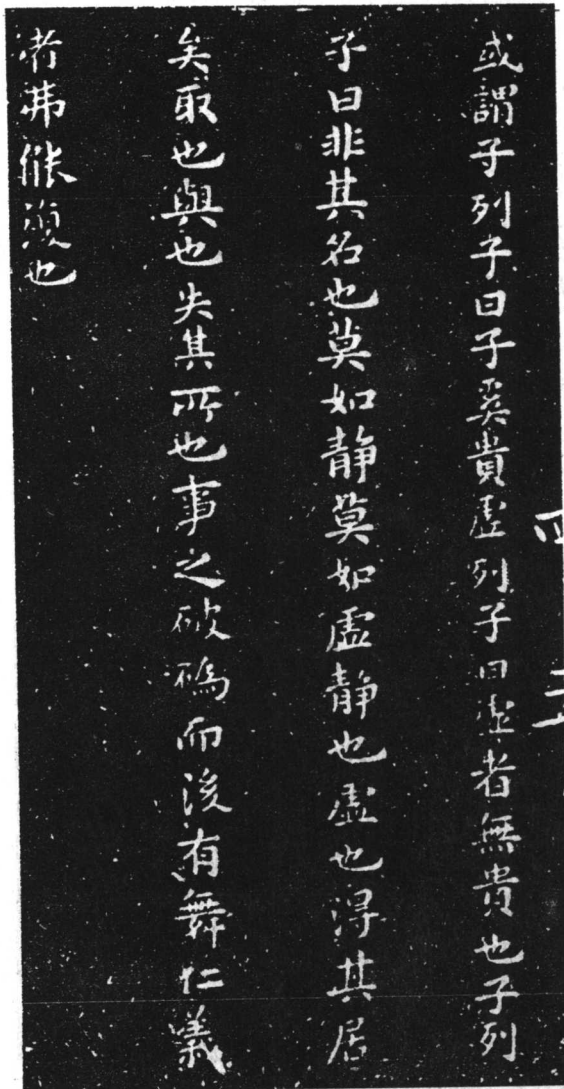 或謂子列子曰子奚貴虛列子曰虛者無貴也子列
子曰非其名也莫如靜莫如虛靜也虛也淂其居
矣取也與也失其所也事之破䃣而後有舞仁義
者弗能復也